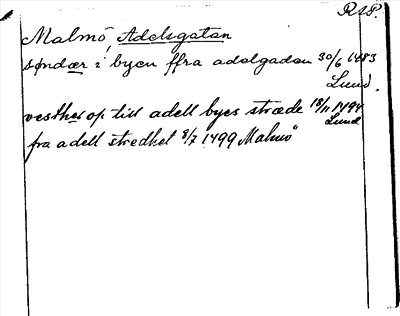 R&P.
Malmö, Adelsgatan
søndær i byen ffra adelgaden 30/6 1483
Lund.
vesthæ op till adell byes stræde 18/11 1494
Lund
fra adell stredhet 8/7 1499 Malmö